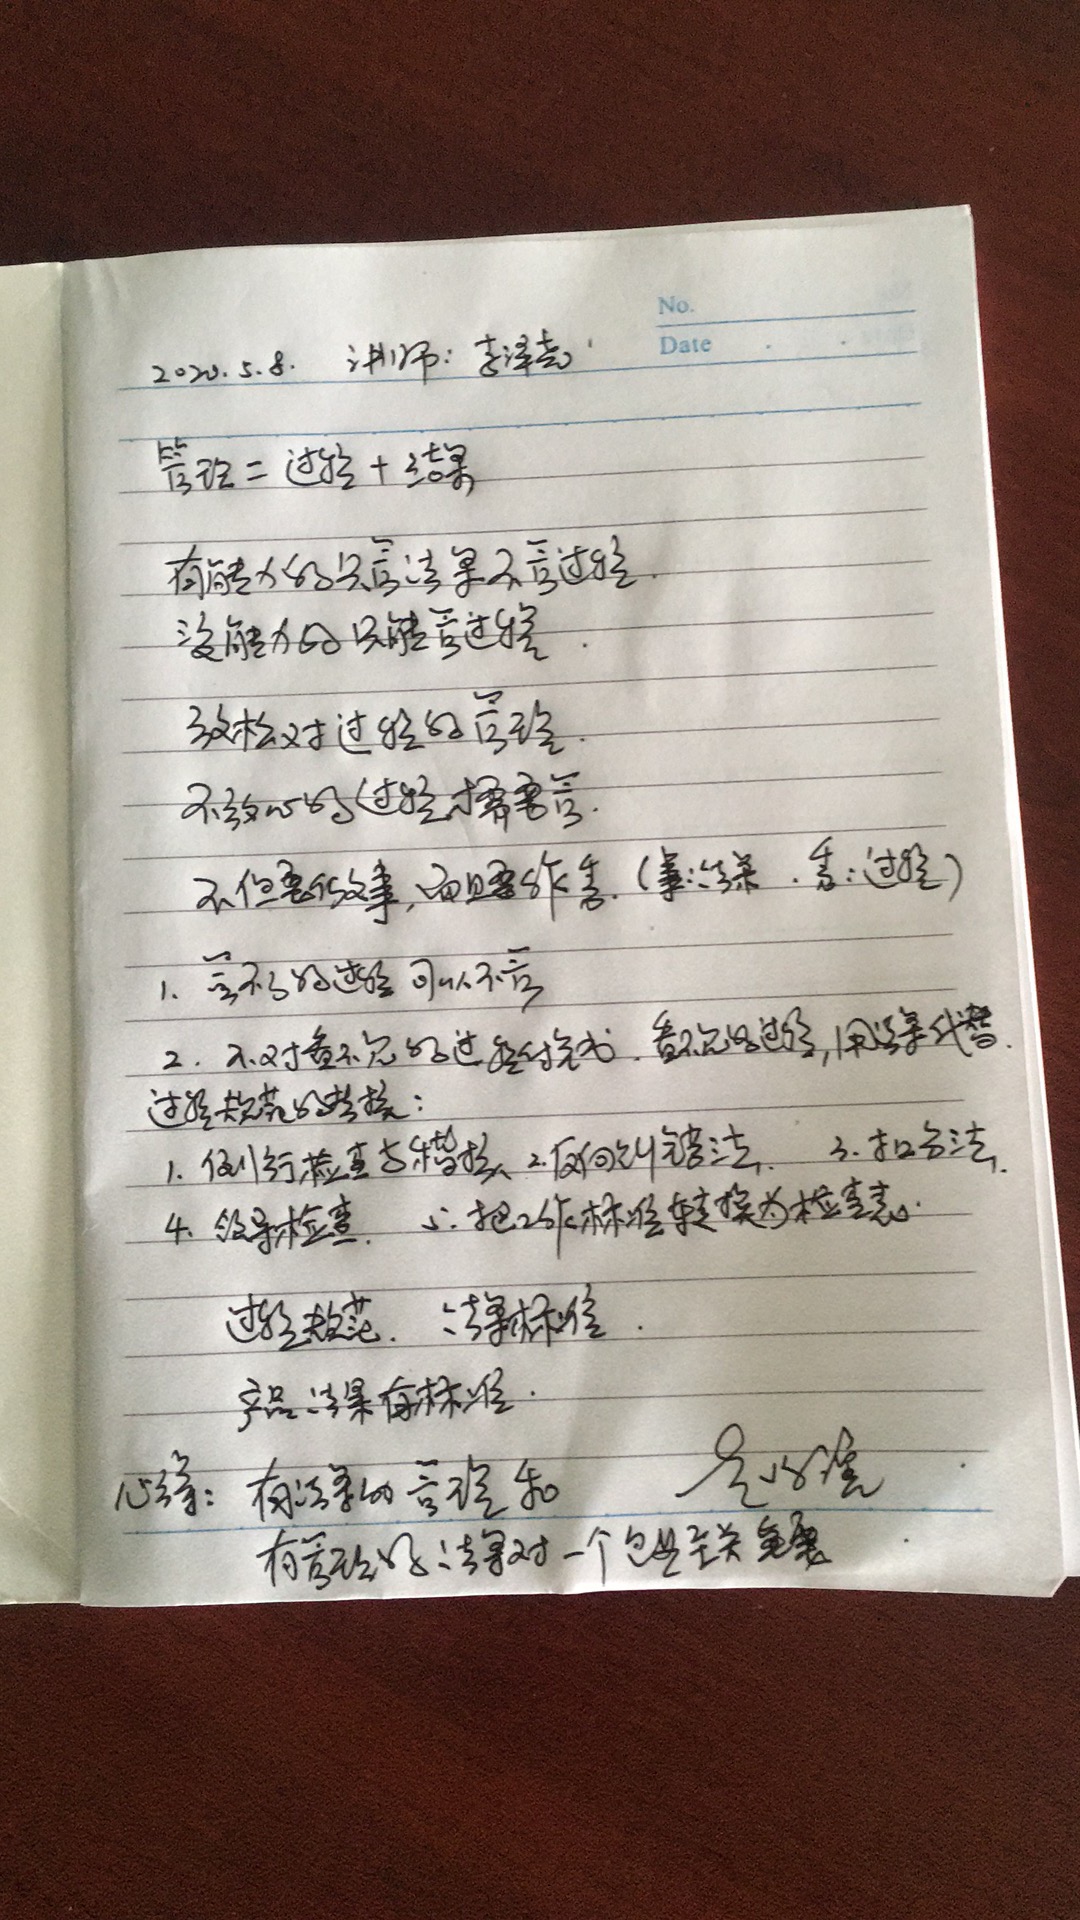 No.
Date
2020.5.8. 讲师: 李泽尧
管理=过程+结果
有能力的只管结果不管过程.
没能力的只能管过程.
放松对过程的管理.
不放心的过程才需要管.
不但要做事,而且要作秀.(事:结果.秀:过程)
1. 管不了的过程可以不管
2. 不对看不见的过程付完成.看不见的过程,用结果代替.
过程规范的考核:
1. 例行检查与稽核 2.反向纠错法. 3. 扣分法.
4. 领导检查. 5.把工作标准转换为检查表.
过程规范. 结果标准.
产品结果有标准.
心得: 有结果的管理和
有管理的结果对一个包是至关重要